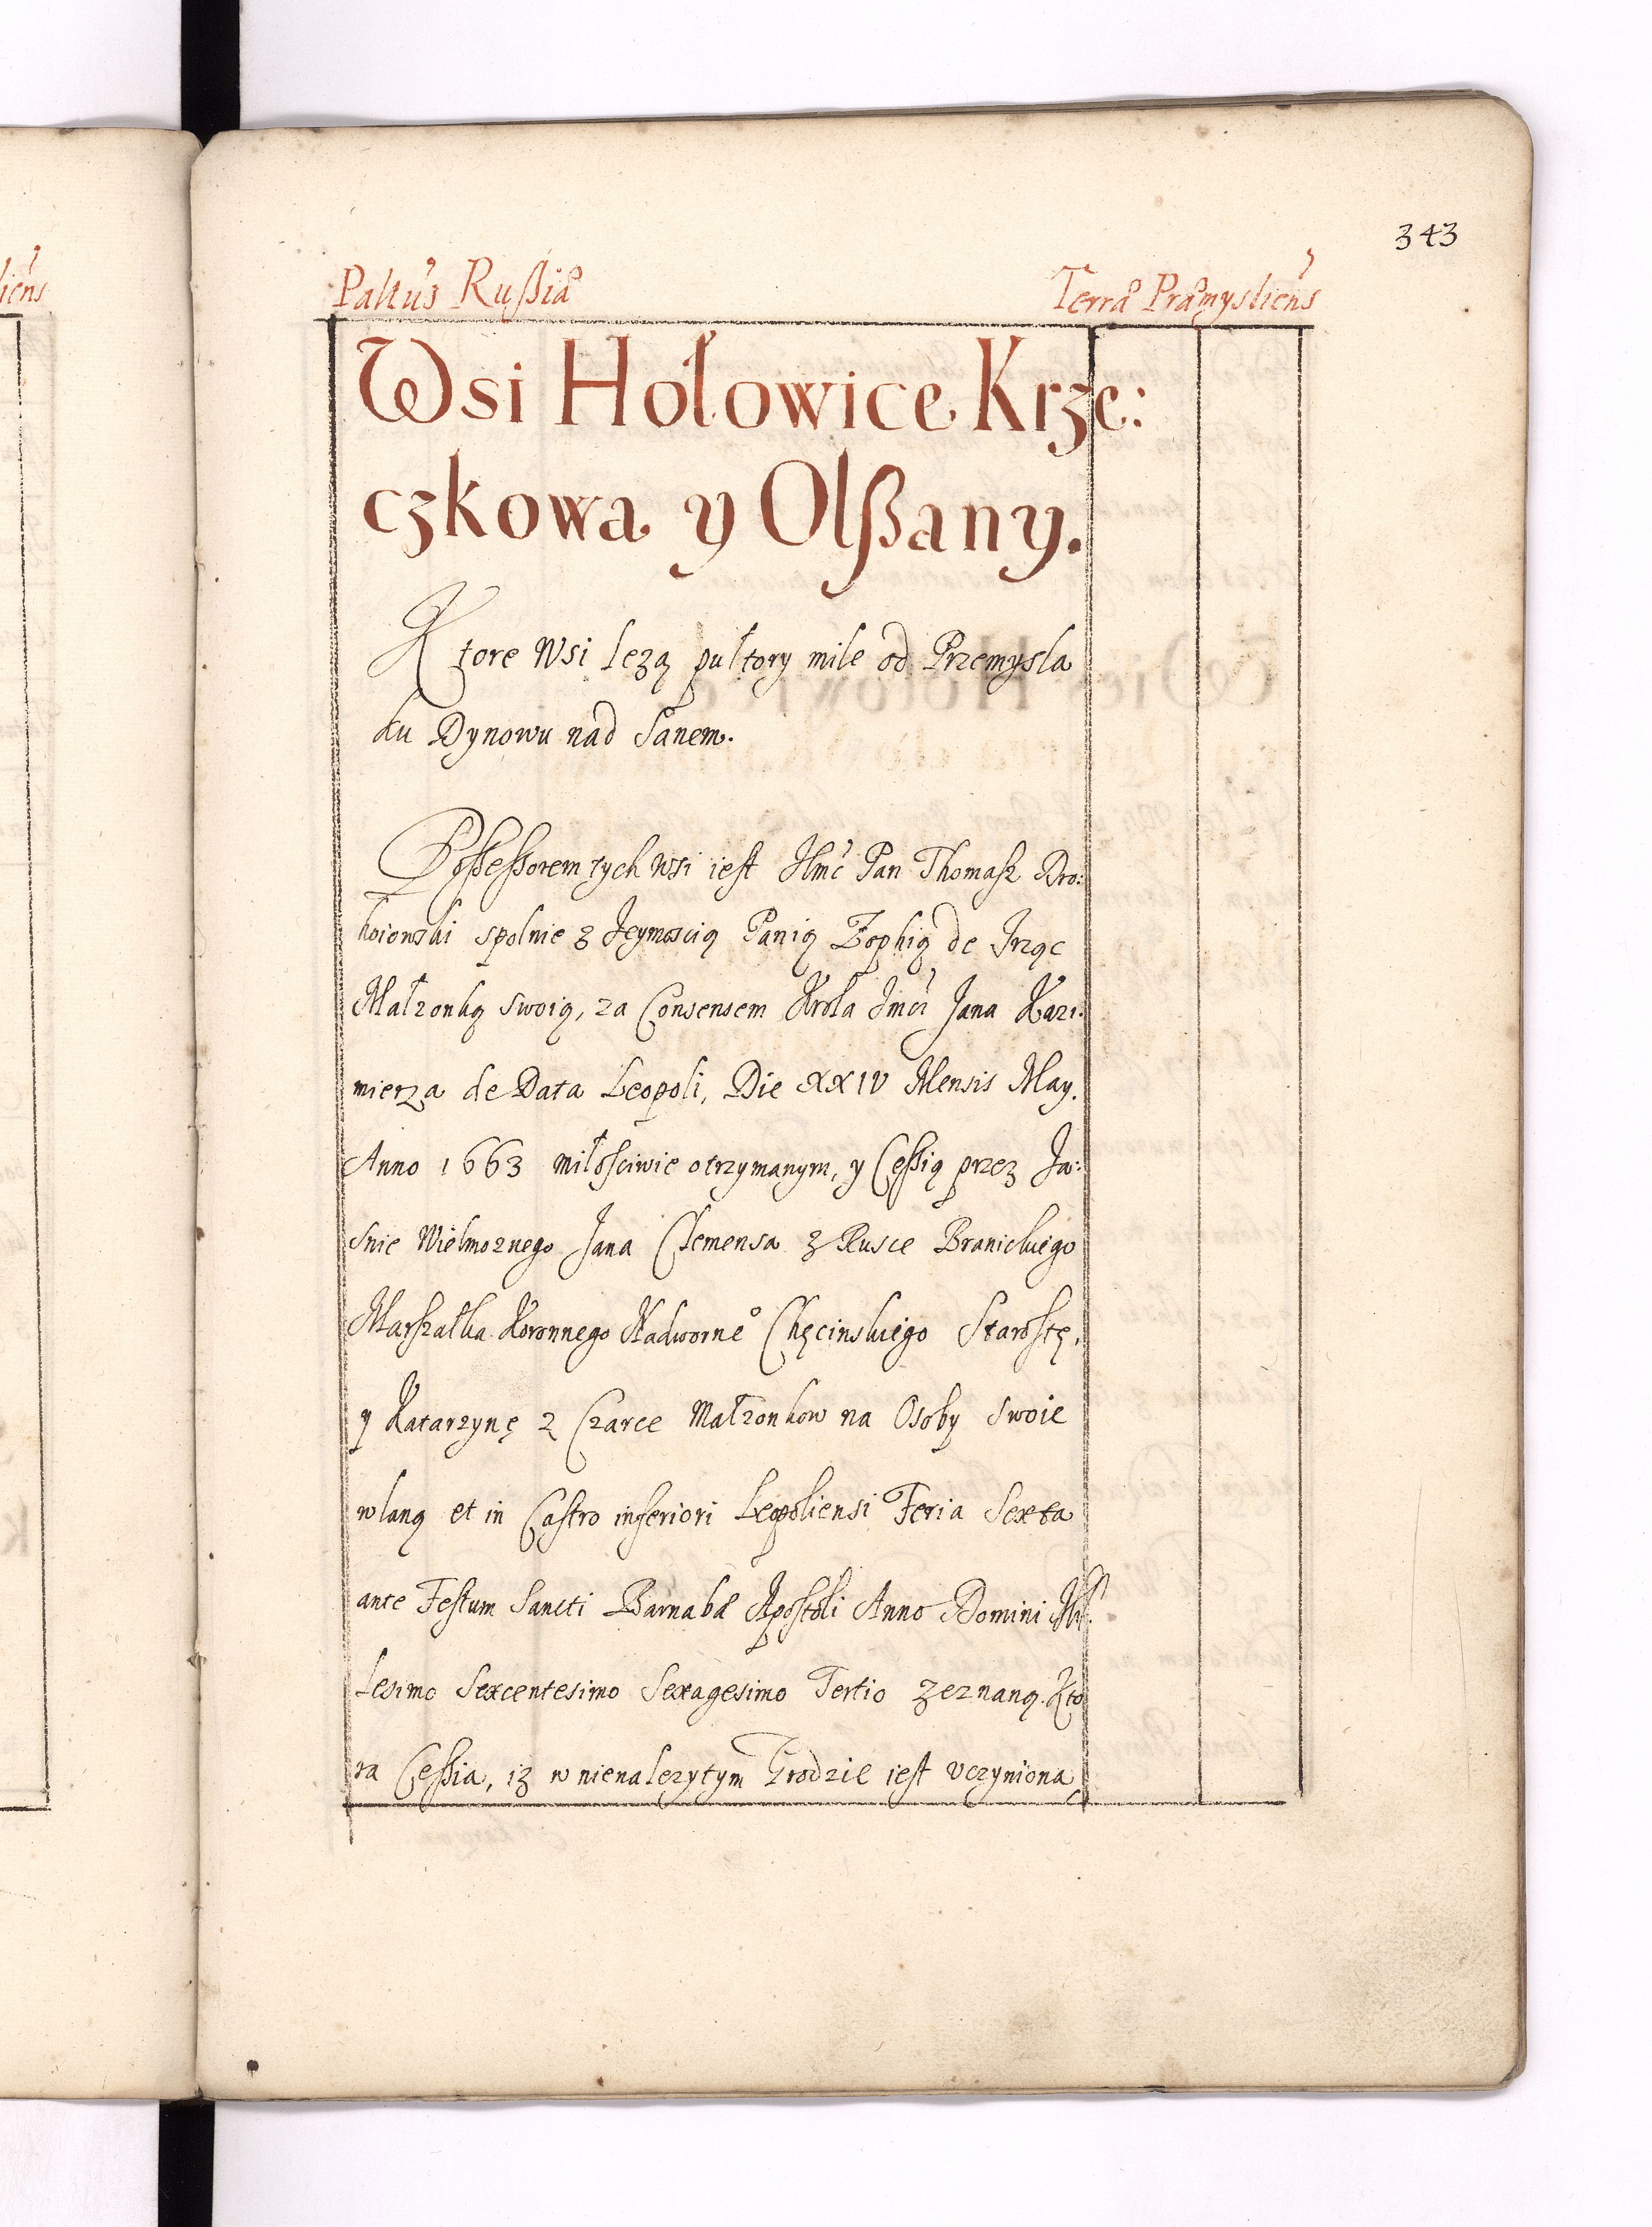 343
Palt'us Rußiæ Terræ Præmysliens'
Wsi Hołowice Krze:
czkowa y Olßany.
Ktore Wsi lezą pułtory mile od Przemysla
ku Dynowu nad Sanem.
Poßeßorem tych wsi iest Jmć Pan Thomasz Dro:
hoiowski spolnie z Jeymoscią Panią Zophią de Irząc
Małzonką swoią, za Consensem Krola Jmći Jana Kazi:
mierza de Data Leopoli, Die XXIV Mensis May.
Anno 1663 miłosciwie otrzymanym, y Ceßią przez Ja:
snie Wielmoznego Jana Clemensa z Rusce Branickiego
Marszałka Koronnego Nadworne° Chęcinskiego Starostę,
y Katarzynę z Czarce Małzonkow na Osoby swoie
wlaną et in Castro inferiori Leopoliensi Feria Sexta
ante Festum Sancti Barnabæ Apostoli Anno Domini Mil:
lesimo Sexcentesimo Sexagesimo Tertio zeznaną. Kto
ra Ceßia, iz w nienalezytym Grodzie iest vczyniona,